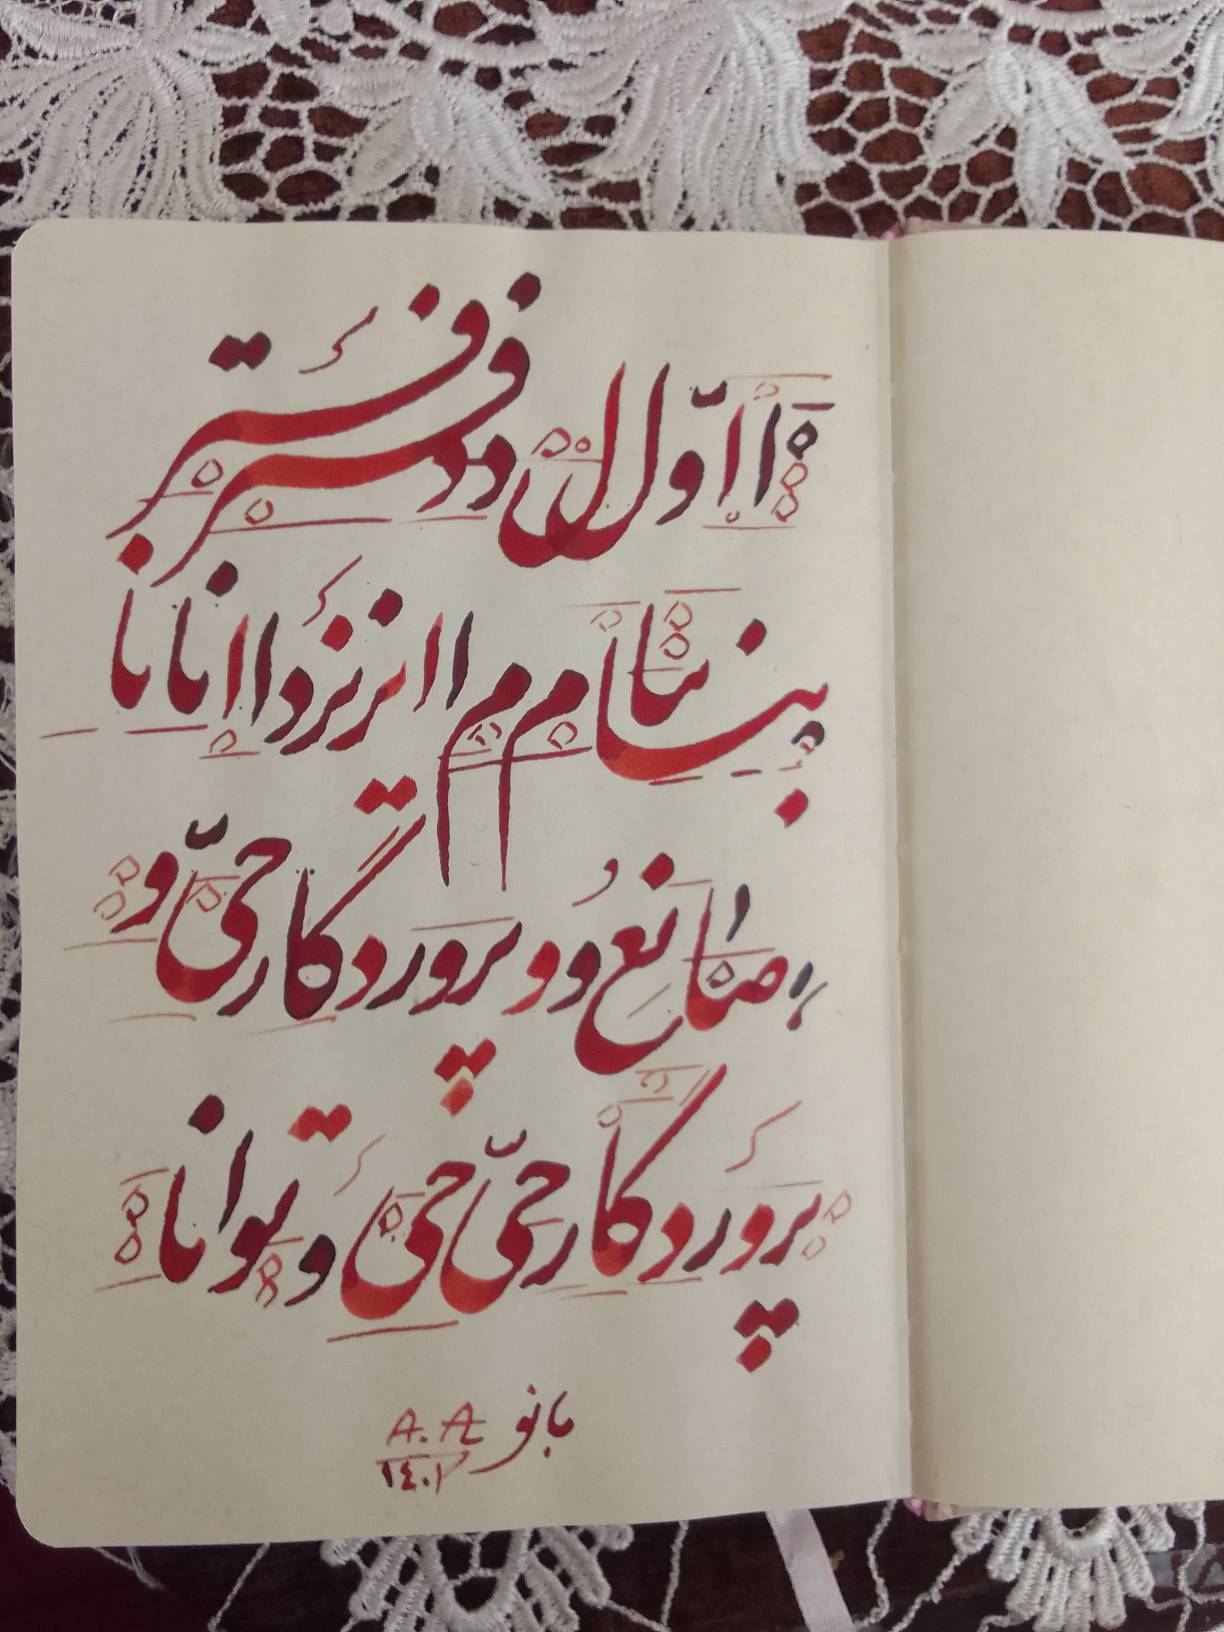 اوّل دفتر
بنام ایزد دانا
صانع و پروردگار حیّ و
پروردگار حیّ و توانا
بانو A.A
۱۴۰۲